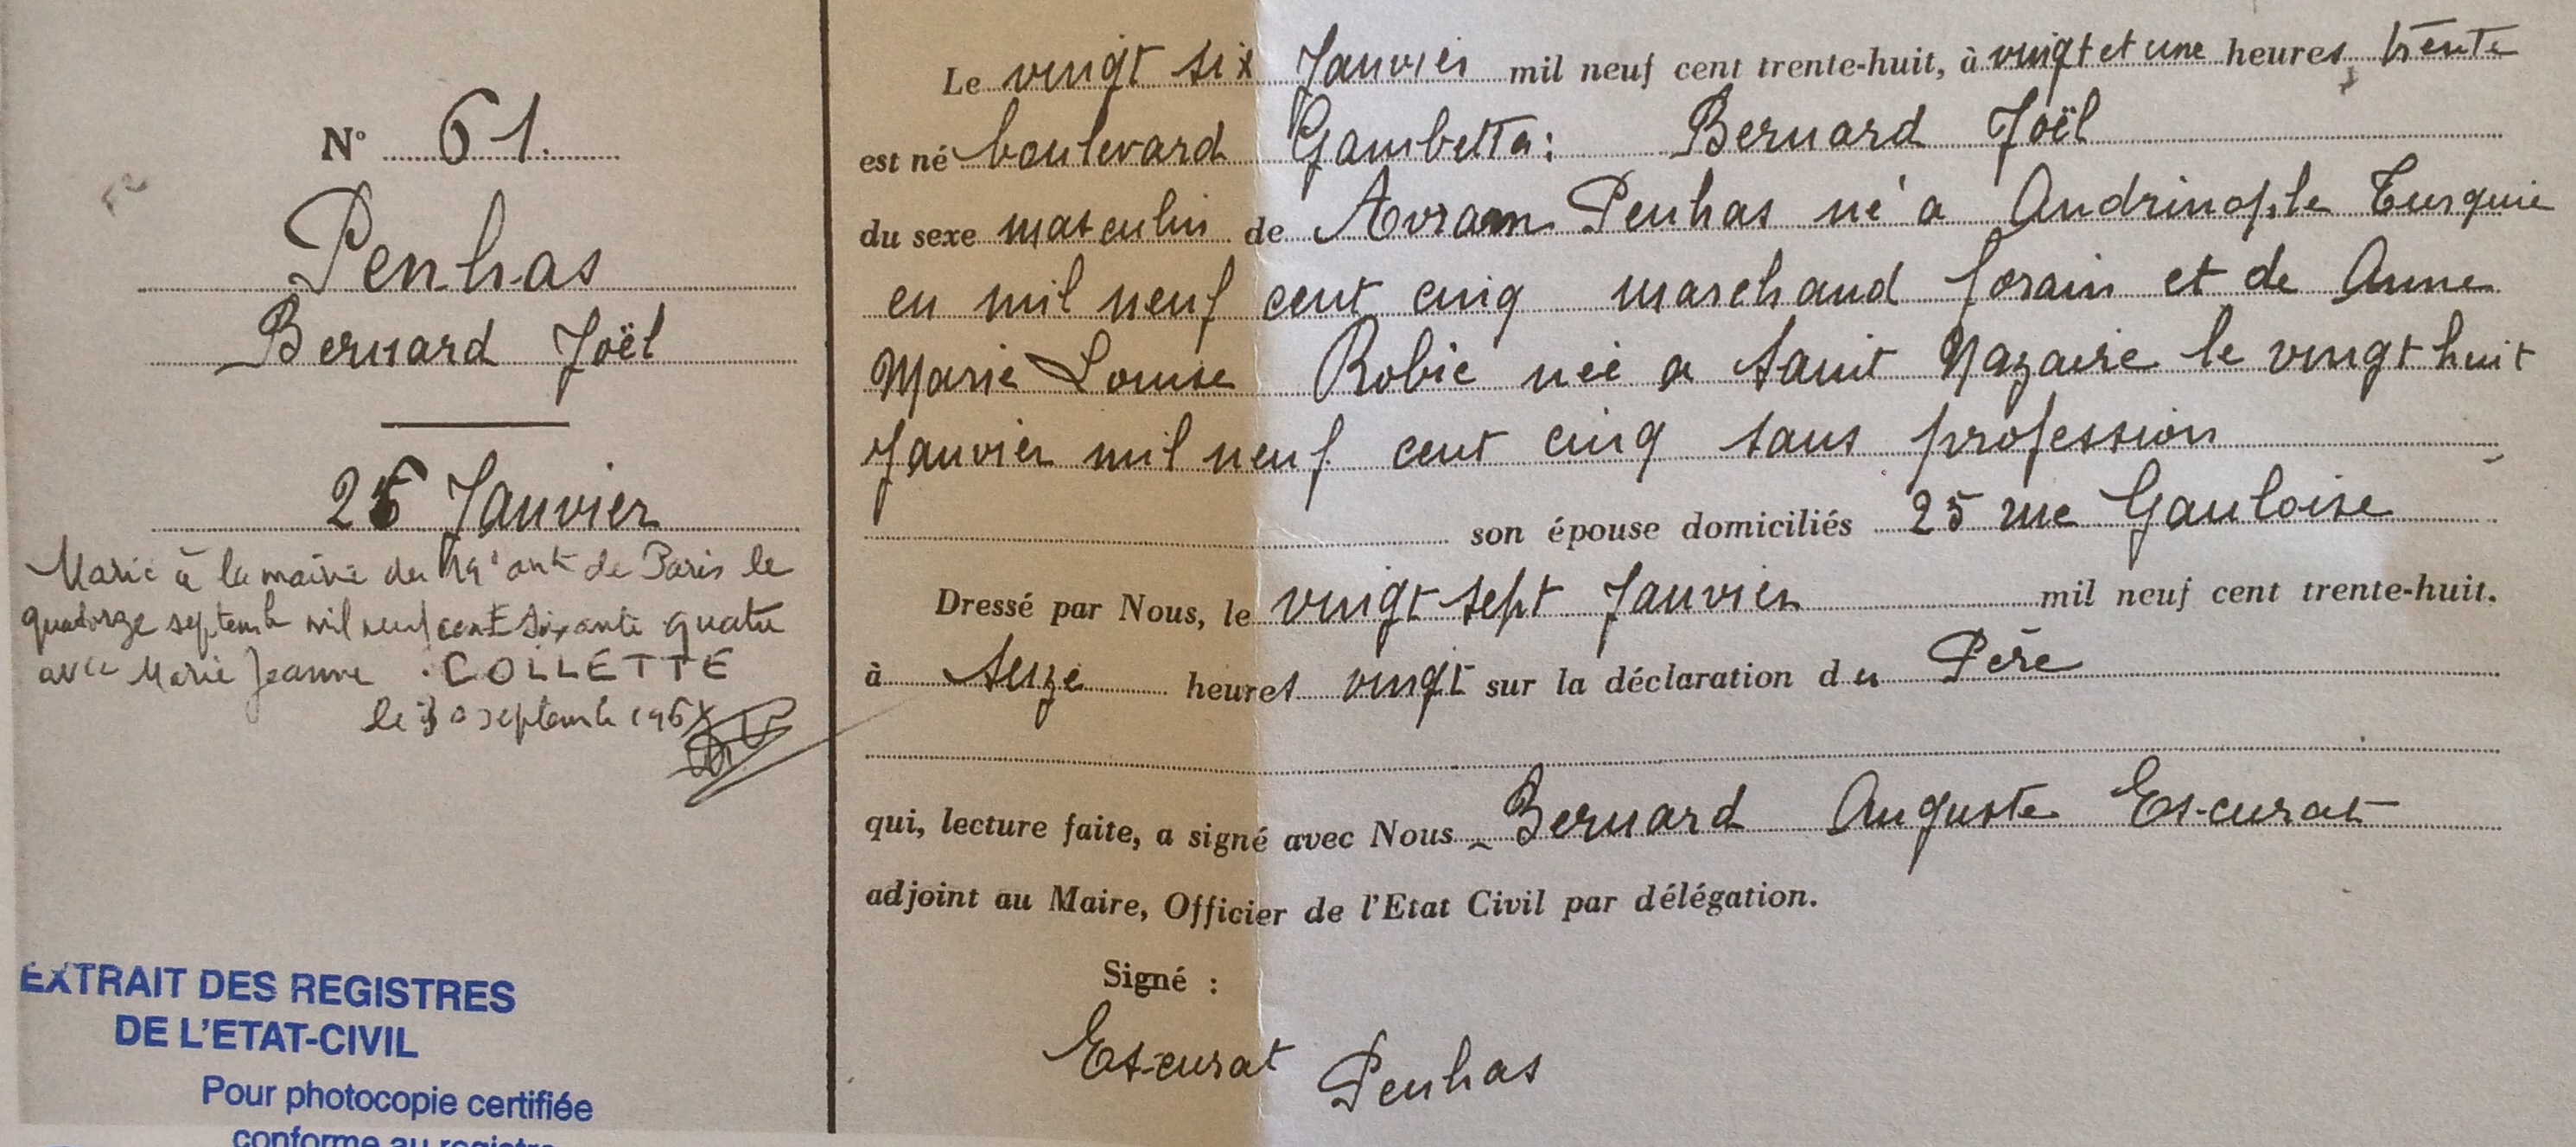 N° 61.
Penhas
Bernard Joël
26 Janvier
Marié à la mairie du 19e arrt de Paris le
quatorze septembre mil neuf cent soixante quatre
avec Marie Jeanne COLLETTE
le 30 septembre 1964
EXTRAIT DES REGISTRES
DE L'ETAT-CIVIL
Pour photocopie certifiée
conforme au registre
Le vingt six Janvier mil neuf cent trente-huit, à vingt et une heures, trente
est né boulevard Gambetta: Bernard Joël
du sexe masculin de Avram Penhas né a Andrinople Turquie
en mil neuf cent cinq marchand forain et de Anne
Marie Louise Robic née a Saint Nazaire le vingt huit
Janvier mil neuf cent cinq sans profession
son épouse domiciliés 25 rue Gauloise
Dressé par Nous, le vingt sept Janvier mil neuf cent trente-huit.
à seize heures vingt sur la déclaration du Père
qui, lecture faite, a signé avec Nous Bernard Auguste Es-curat
adjoint au Maire, Officier de l'Etat Civil par délégation.
Signé :
Es-curat Penhas